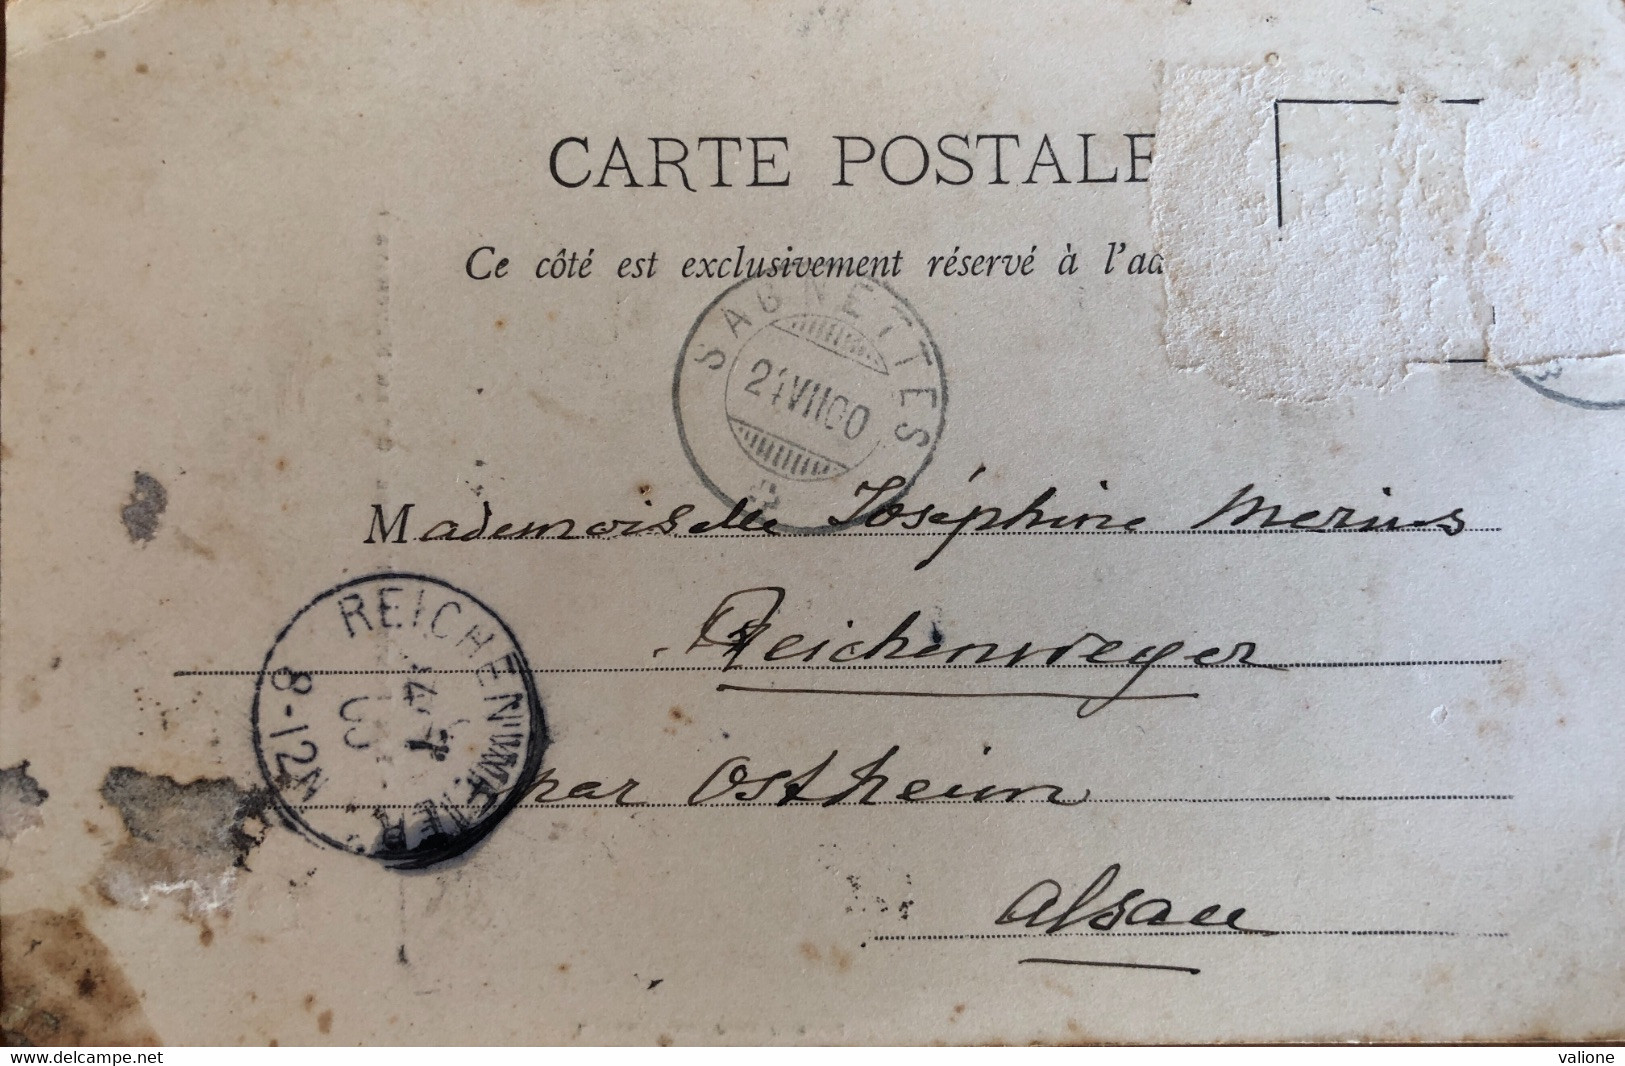 CARTE POSTALE
Ce côté est exclusivement réservé à l'ad
SAGNETTES
21 VII 00
Mademoiselle Joséphine Merius
Reichenweyer
par Ostheim
Alsace
REICHENWEIER
8-12V
www.delcampe.net
valione